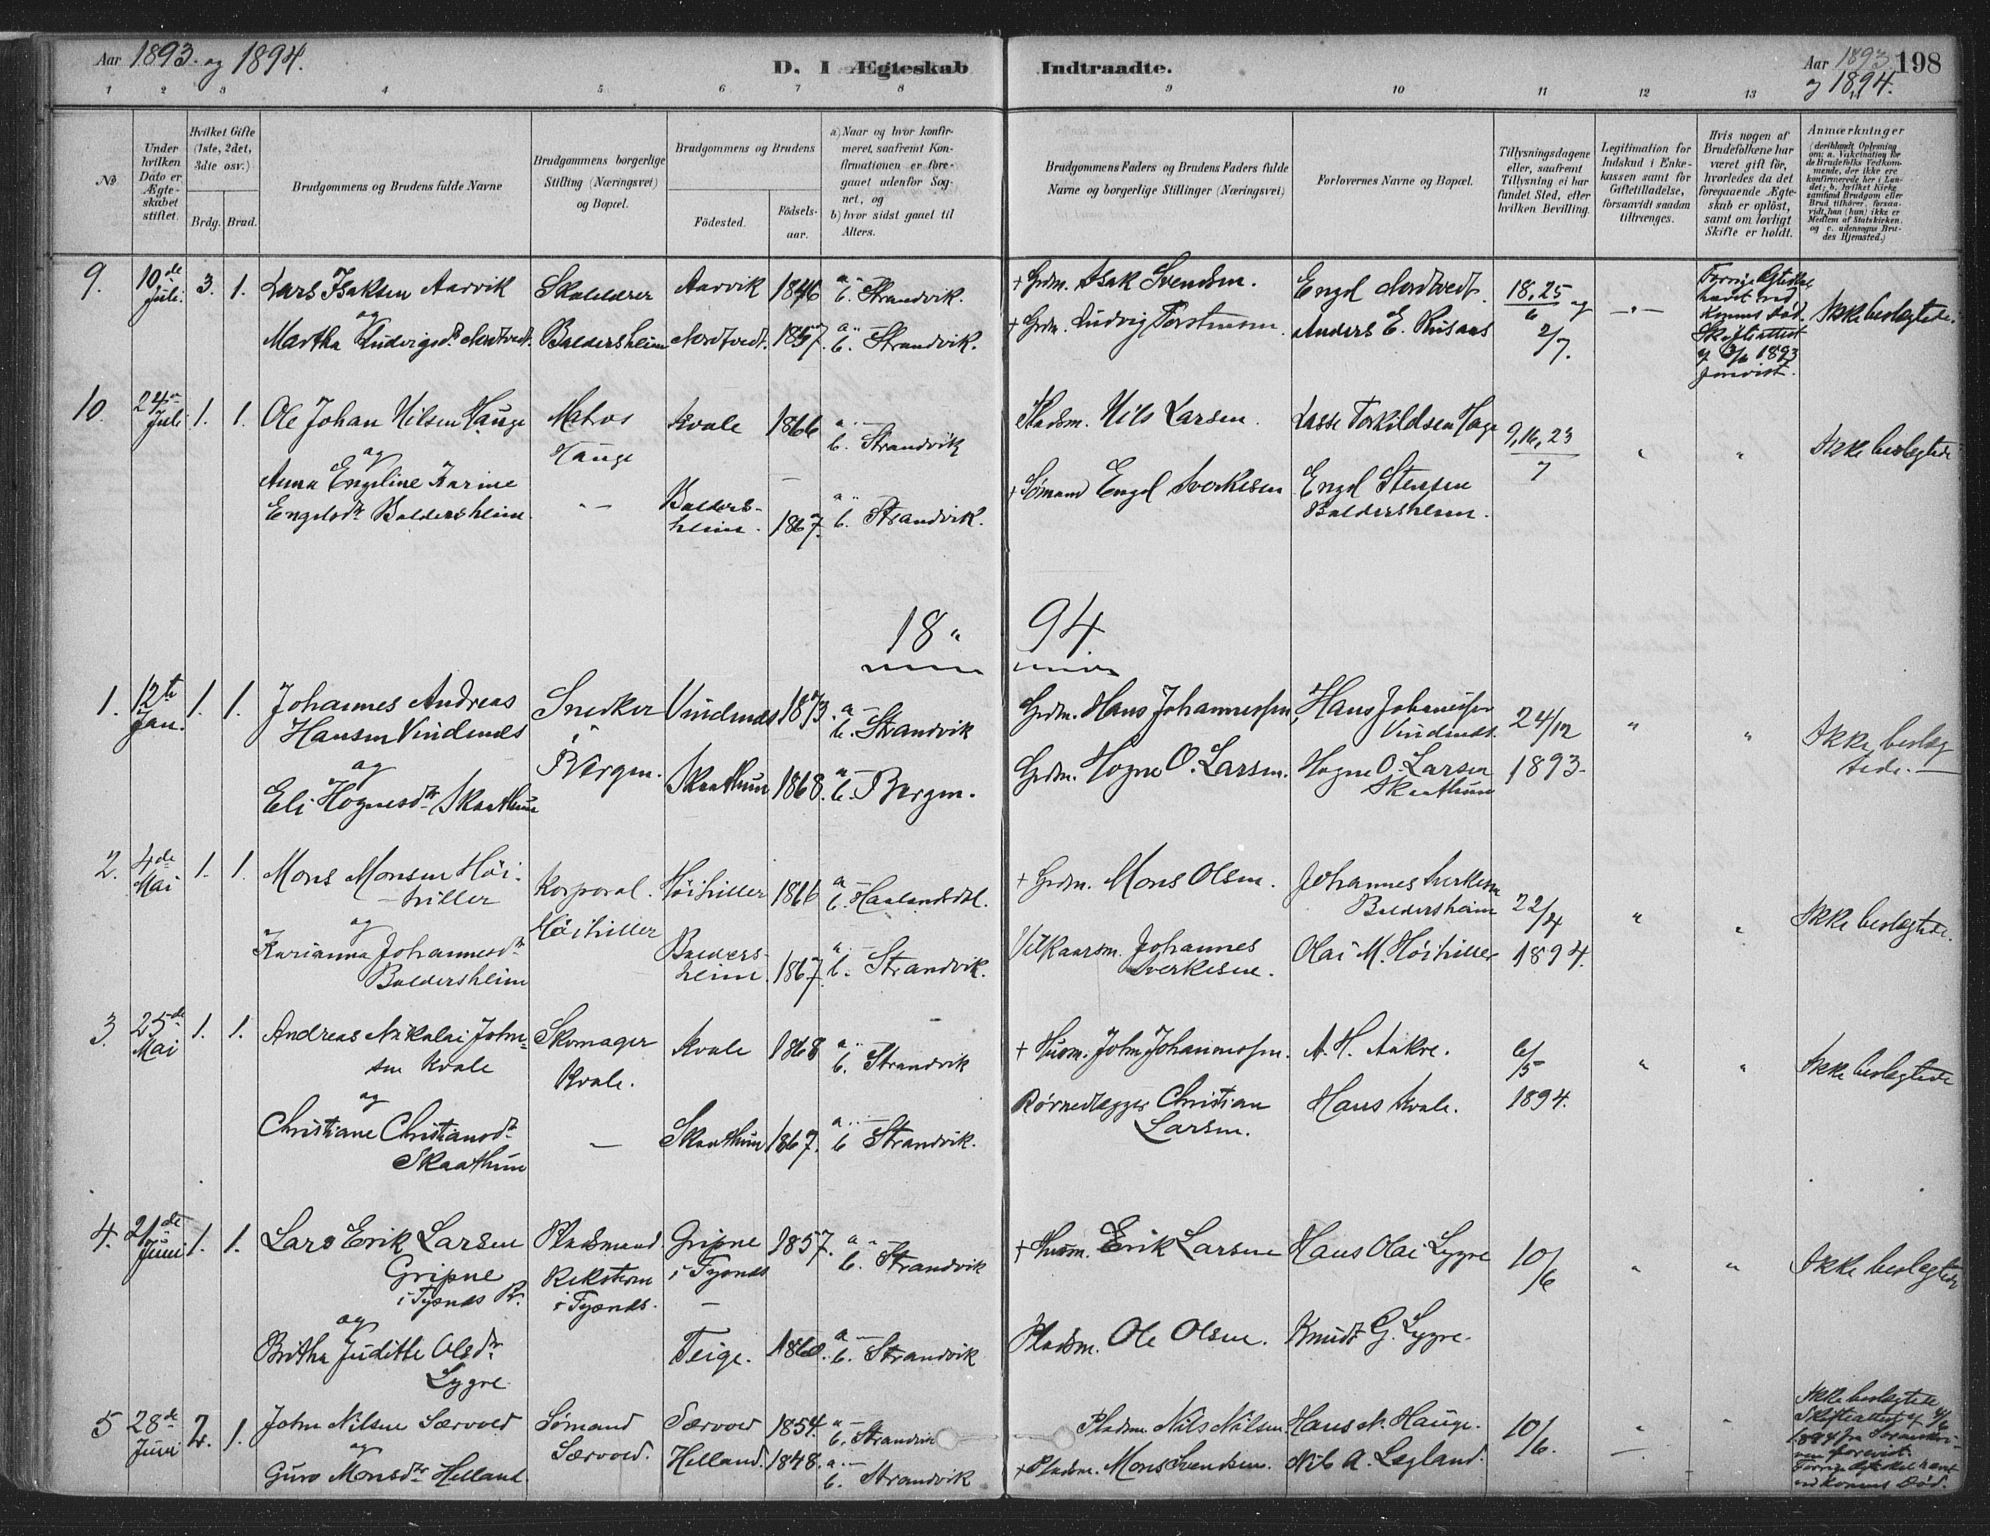 Aar 1893. og 1894.
D. I Ægteskab Indtraadte.
Aar 1893 198
og 1894.
1 2 3 4 5 6 7 8 9 10 11 12 13 14
No
Under hvilken Dato er Ægteskabet stiftet.
Hvilket Gifte (1ste, 2det, 3dte osv.)
Brdg. Brud.
Brudgommens og Brudens fulde Navne
Brudgommens borgerlige Stilling (Næringsvei) og Bopæl.
Brudgommens og Brudens
Födested. Födsels-aar.
a) Naar og hvor konfirmeret, saafremt Konfirmationen er foregaaet udenfor Sognet, og
b) hvor sidst gaaet til Alters.
Brudgommens Faders og Brudens Faders fulde Navne og borgerlige Stillinger (Næringsvei)
Forlovernes Navne og Bopæl.
Tillysningsdagene eller, saafremt Tillysning ei har fundet Sted, efter hvilken Bevilling.
Legitimation for Indskud i Enkekassen samt for Giftetilladelse, forsaavidt saadan tiltrænges.
Hvis nogen af Brudefolkene har været gift før, hvorledes da det foregaaende Ægteskab er oplöst, samt om lovligt Skifte er holdt.
Anmærkninger
9. 10de Juli. 3. 1. Lars Isaksen Aarvik Skolelærer Aarvik 1846 a. — b. Strandvik. + Grdm. Isak Svendsen. Engel Nordtvedt. 18, 25/6 og — " — Ikke beslegtede.
og
Martha Ludvigsdr Nordtvedt. Baldersheim Nordtvedt. 1857. a. — b. Strandvik. + Grdm. Ludvig Torstensen. Anders E. Rusaas 2/7.
Skifteattest af 3/6 1893 forevist.
10. 24de Juli 1. 1. Ole Johan Nilsen Hauge Matros Kvale 1866 a. — b. Strandvik Pladsm. Nils Larsen. Lasse Torkildsen Hage 9, 16, 23/7 " " Ikke beslegtede
og Hauge
Anna Engeline Karine + Sømand Engel Sverkesen Engel Stensen
Engelsdr Baldersheim. " — Baldersheim. 1867. a. — b. Strandvik. Baldersheim.
18 " 94
1. 12te Jan. 1. 1. Johannes Andreas Snedker Vindenes 1873. a — b. Strandvik Grdm. Hans Johannessen, Hans Johannessen 24/12 " " Ikke beslegtede. —
Hansen Vindenes Vindenes.
og Bergen.
Eli Hognesdr Skaathun Skaathun 1868. a — b. Bergen. Grdm. Hogne O. Larsen. Hogne O. Larsen 1893.
Skaathun
2. 4de Mai 1. 1. Mons Monsen Höihiller Korporal. Höihiller 1866 a — b. Haalandsdal. + Grdm. Mons Olsen. Johannes Sverkesen 22/4 " " Ikke beslegtede.
og Höihiller Baldersheim
Karianna Johannesdr Baldersheim 1867. a — b. Strandvik. Vilkaarsm. Johannes Olai M. Höihiller 1894.
Baldersheim Sverkesen.
3. 25de Mai 1. 1. Andreas Nikolai Johnsen Kvale Skomager Kvale 1868 a. — b. Strandvik + Husm. John Johannessen. A. H. Aakre. 6/5 " " Ikke beslegtede
og Kvale.
Christiane Christiansdr — Skaathun 1867. a. — b Strandvik. Christian Larsen. Hans Kvale. 1894.
Skaathun
4. 21de Juni 1. 1. Lars Erik Larsen Pladsmand. Gripne 1857. a " — b. Strandvik + Husm. Erik Larsen Hans Olai Lygre 10/6 " " Ikke beslegtede
Gripne Reksteren i Tysnes
i Tysnes Pr. i Tysnes. —
og
Britha Juditte Olsdr Teige. 1860. a — b. Strandvik Pladsm. Ole Olsen. Knudt G. Lygre.
Lygre.
5 28de Juni 2. 1. John Nilsen Særvold Sømand Særvold 1854. a — b. Strandvik Pladsm. Nils Nilsen Hans N. Hauge. 10/6. " " Ikke beslegtede
og Særvold.
Guro Monsdr Helland. Helland. 1848. a. — b. Strandvik + Pladsm. Mons Svendsen. Nils A. Legland.